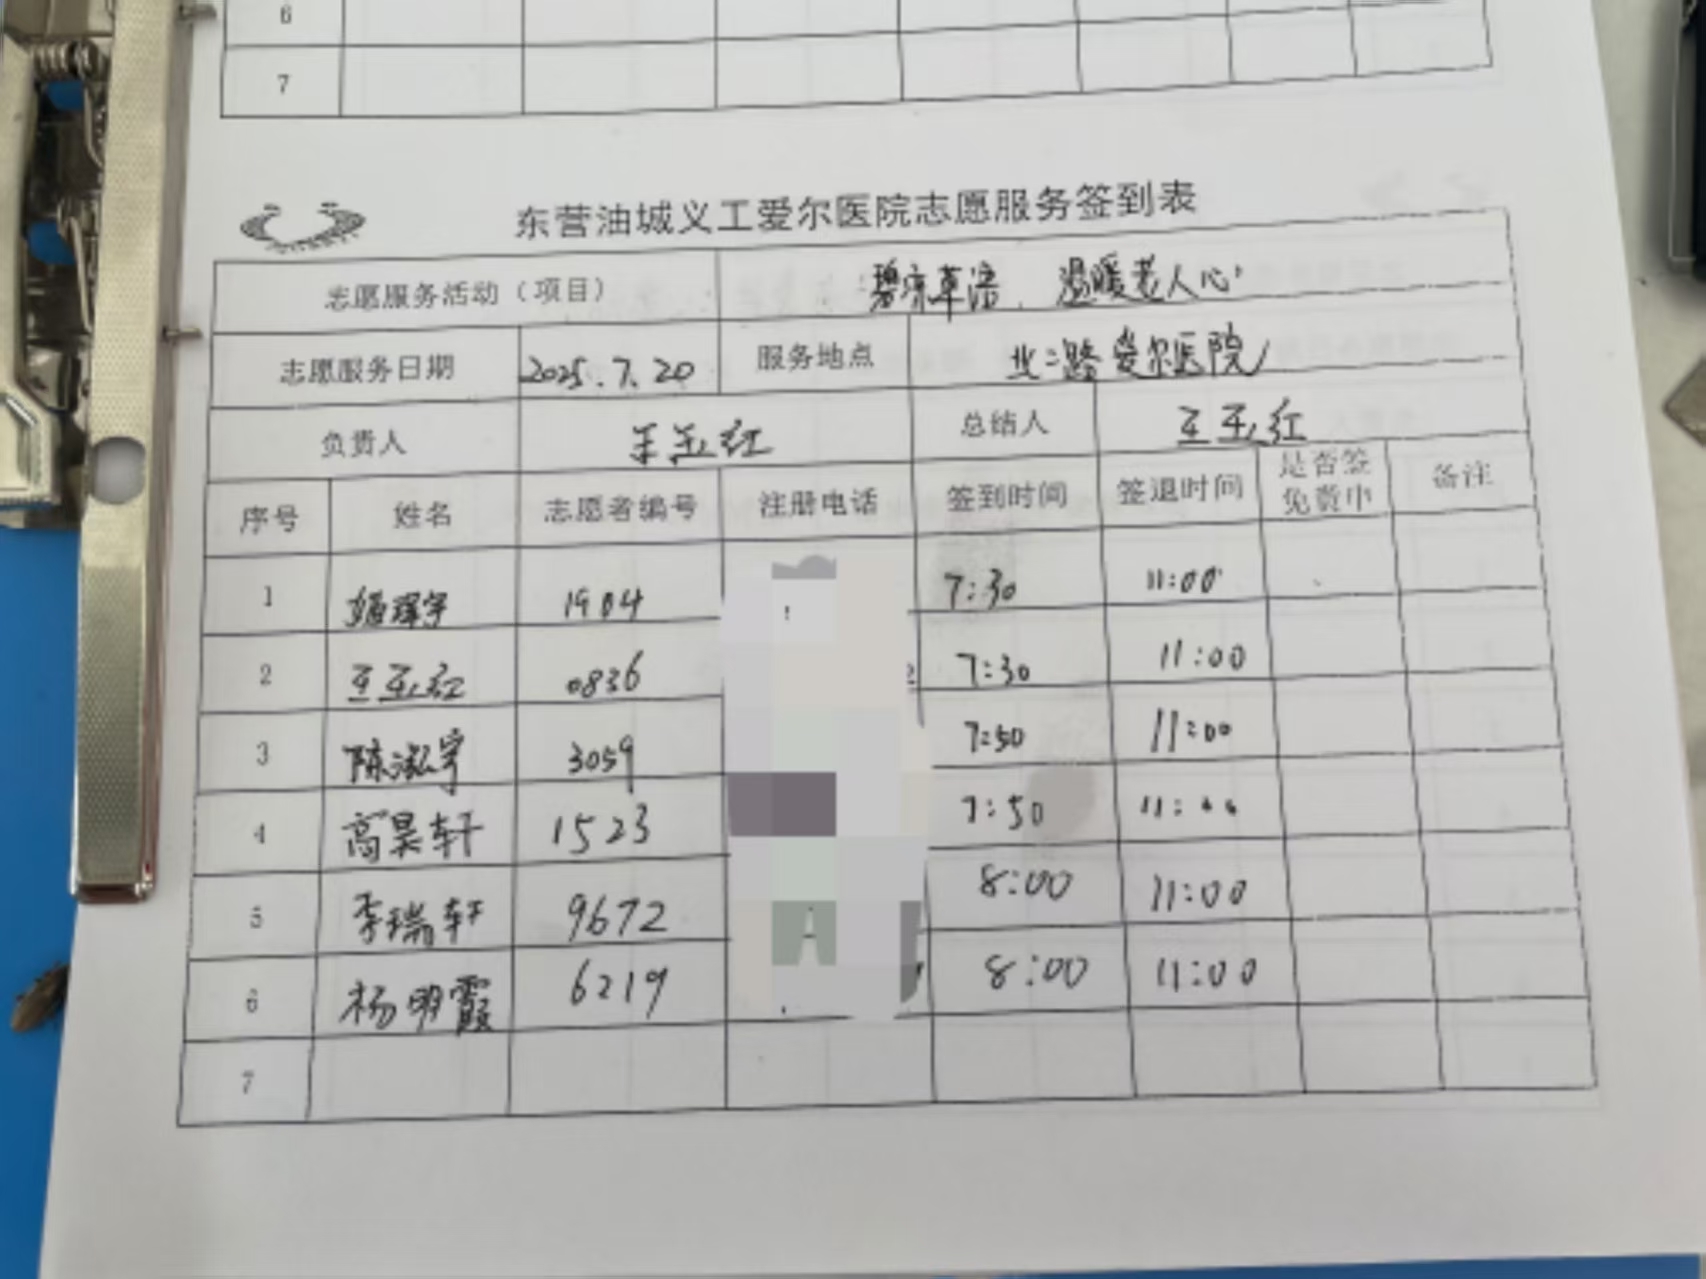 6
7
东营油城义工爱尔医院志愿服务签到表
志愿服务活动（项目） 温暖老人心
志愿服务日期 2025.7.20 服务地点 北二路爱尔医院
负责人 王玉红 总结人 王玉红
序号 姓名 志愿者编号 注册电话 签到时间 签退时间 是否签免费巾 备注
1 1904 7:30 11:00
2 王玉红 0836 7:30 11:00
3 陈泓宇 3059 7:50 11:00
4 高昊轩 1523 7:50 11:00
5 李瑞轩 9672 8:00 11:00
6 杨明霞 6219 8:00 11:00
7